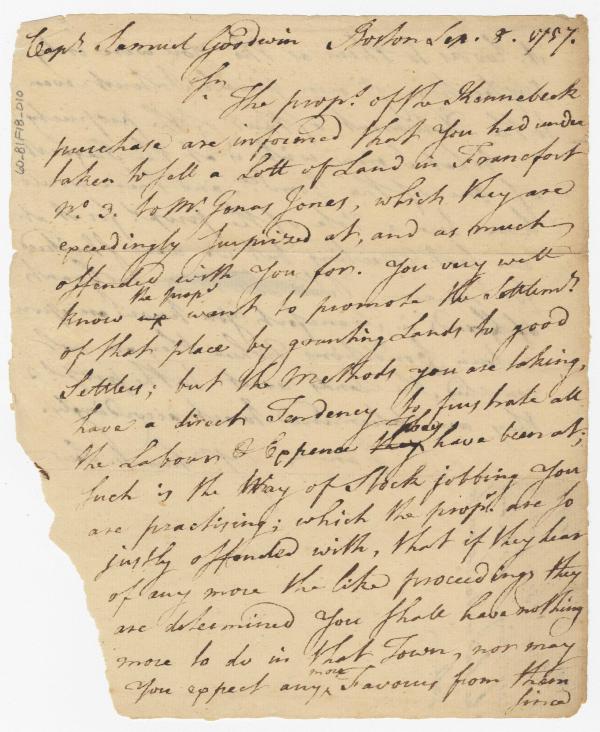 Capt. Samuel Goodwin Boston Sep. 8. 1757.
Sr.
The props. of the Kennebeck
purchase are informed that you had under
taken to sell a Lott of Land in Francfort
No. 3. to Mr. Jonas Jones, which they are
exceedingly surprized at, and as much
offended with you for. You very well
know the props. want to promote the Settlemt.
of that place by granting Lands to good
Settlers; but the Methods you are taking,
have a direct Tendency to frustrate all
the Labour & Expence they have been at;
such is the Way of Stock jobbing You
are practising; which the props. are so
justly offended with, that if they hear
of any more the like proceedings they
are determined You shall have nothing
more to do in that Town, nor may
You expect any more Favours from them
since
60-81F18-D10